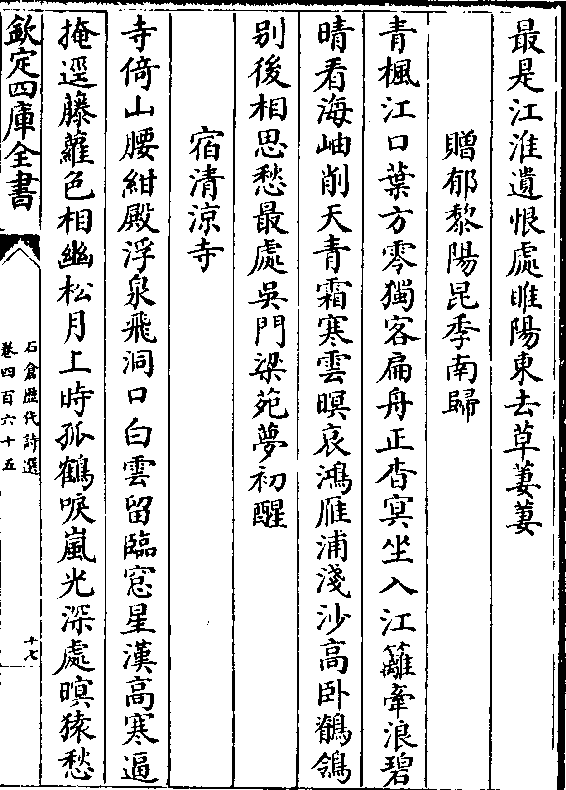 最是江淮遺恨處睢陽東去草萋萋
贈郁黎陽昆季南歸
青楓江口葉方零獨客扁舟正杳冥坐入江籬牽浪碧
晴看海岫削天青霜寒雲暝哀鴻雁浦淺沙高卧鶺鴒
别後相思愁最處吳門梁苑夢初醒
宿清涼寺
寺倚山腰紺殿浮泉飛洞口白雲留臨窻星漢高寒逼
掩逕藤蘿色相幽松月上時孤鶴唳嵐光深處暝猿愁
欽定四庫全書
石倉歴代詩選
卷四百六十五
十七